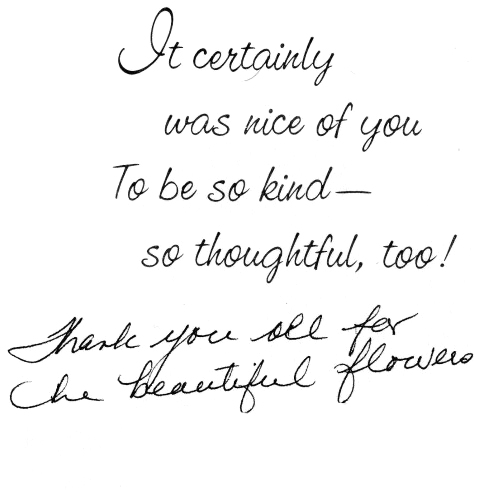 It certainly
was nice of you
To be so kind—
so thoughtful, too!
Thank you all for
the beautiful flowers